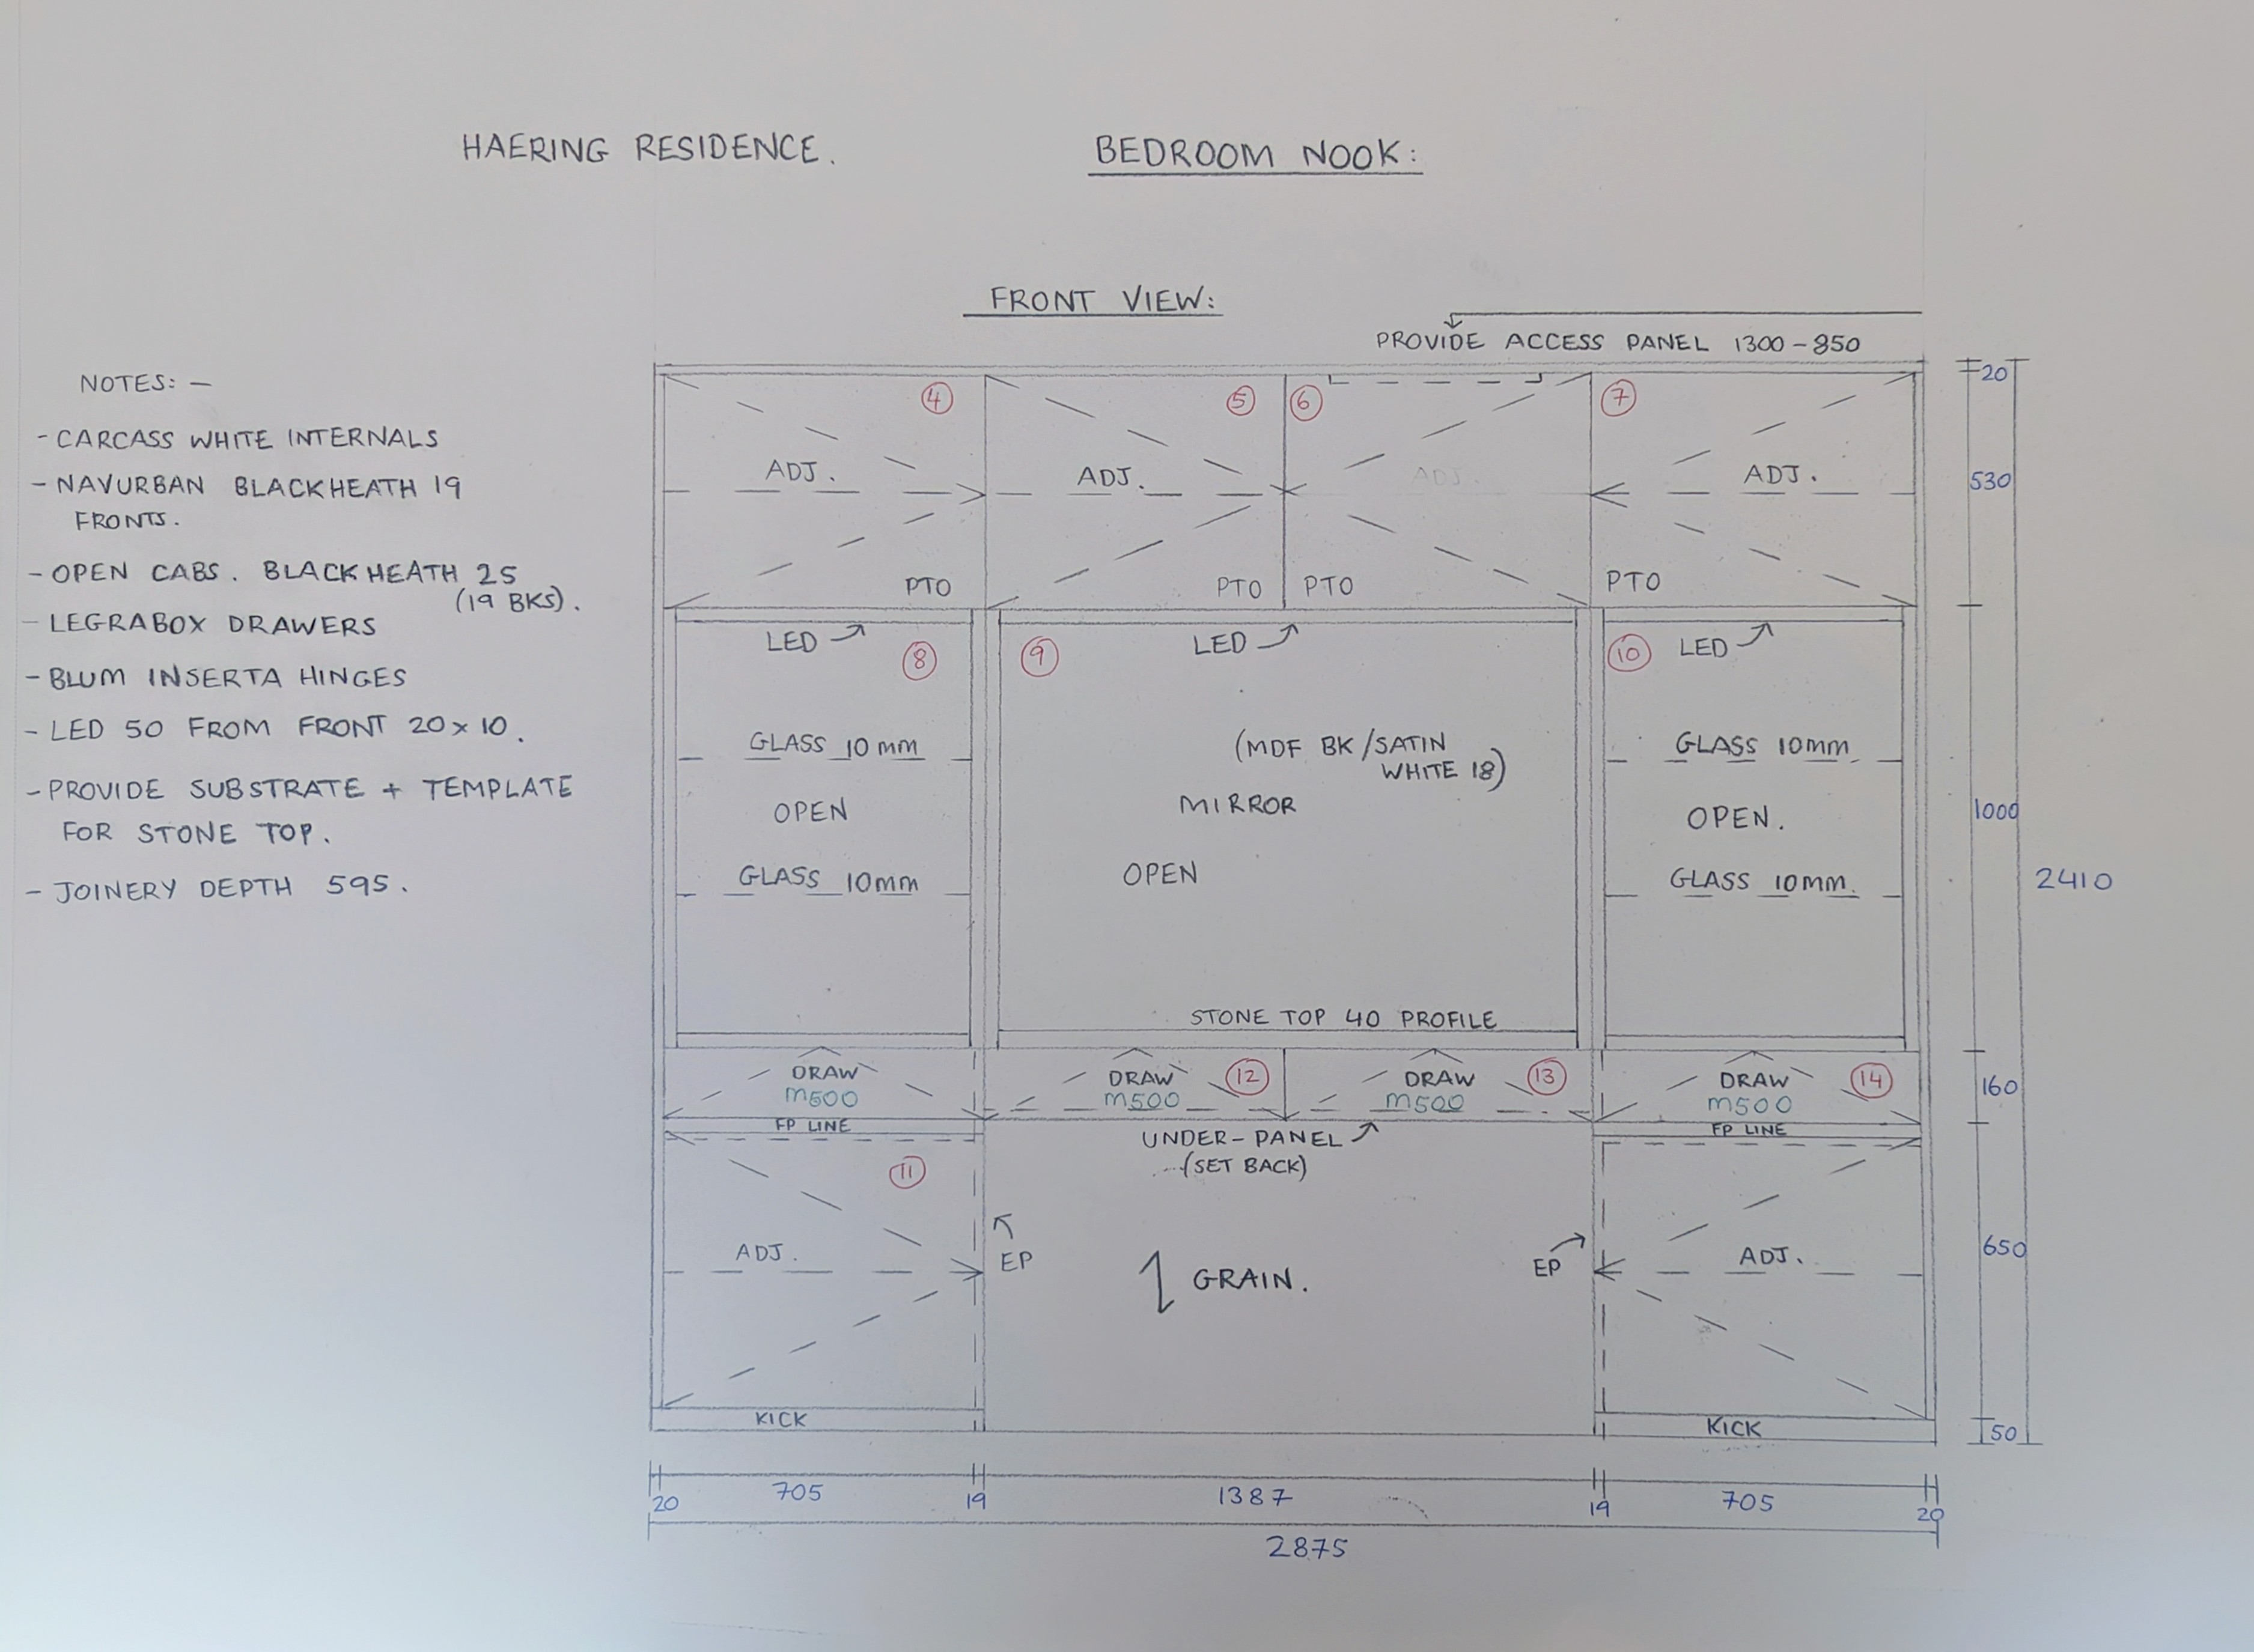 HAERING RESIDENCE.
BEDROOM NOOK:
FRONT VIEW:
PROVIDE ACCESS PANEL 1300-850
NOTES: —
- CARCASS WHITE INTERNALS
- NAVURBAN BLACKHEATH 19
FRONTS.
- OPEN CABS. BLACKHEATH 25
(19 BKS).
- LEGRABOX DRAWERS
- BLUM INSERTA HINGES
- LED 50 FROM FRONT 20x10.
- PROVIDE SUBSTRATE + TEMPLATE
FOR STONE TOP.
- JOINERY DEPTH 595.
4
5
6
7
ADJ.
ADJ.
ADJ.
ADJ.
PTO
PTO
PTO
PTO
LED
LED
LED
8
9
10
GLASS 10mm
OPEN
GLASS 10mm
(MDF BK/SATIN
WHITE 18)
MIRROR
OPEN
STONE TOP 40 PROFILE
GLASS 10mm
OPEN.
GLASS 10mm.
DRAW
M500
DRAW
M500
12
DRAW
M500
13
DRAW
M500
14
FP LINE
FP LINE
UNDER-PANEL
(SET BACK)
11
ADJ.
EP
GRAIN.
EP
ADJ.
KICK
KICK
20
530
1000
2410
160
650
50
20
705
19
1387
19
705
20
2875